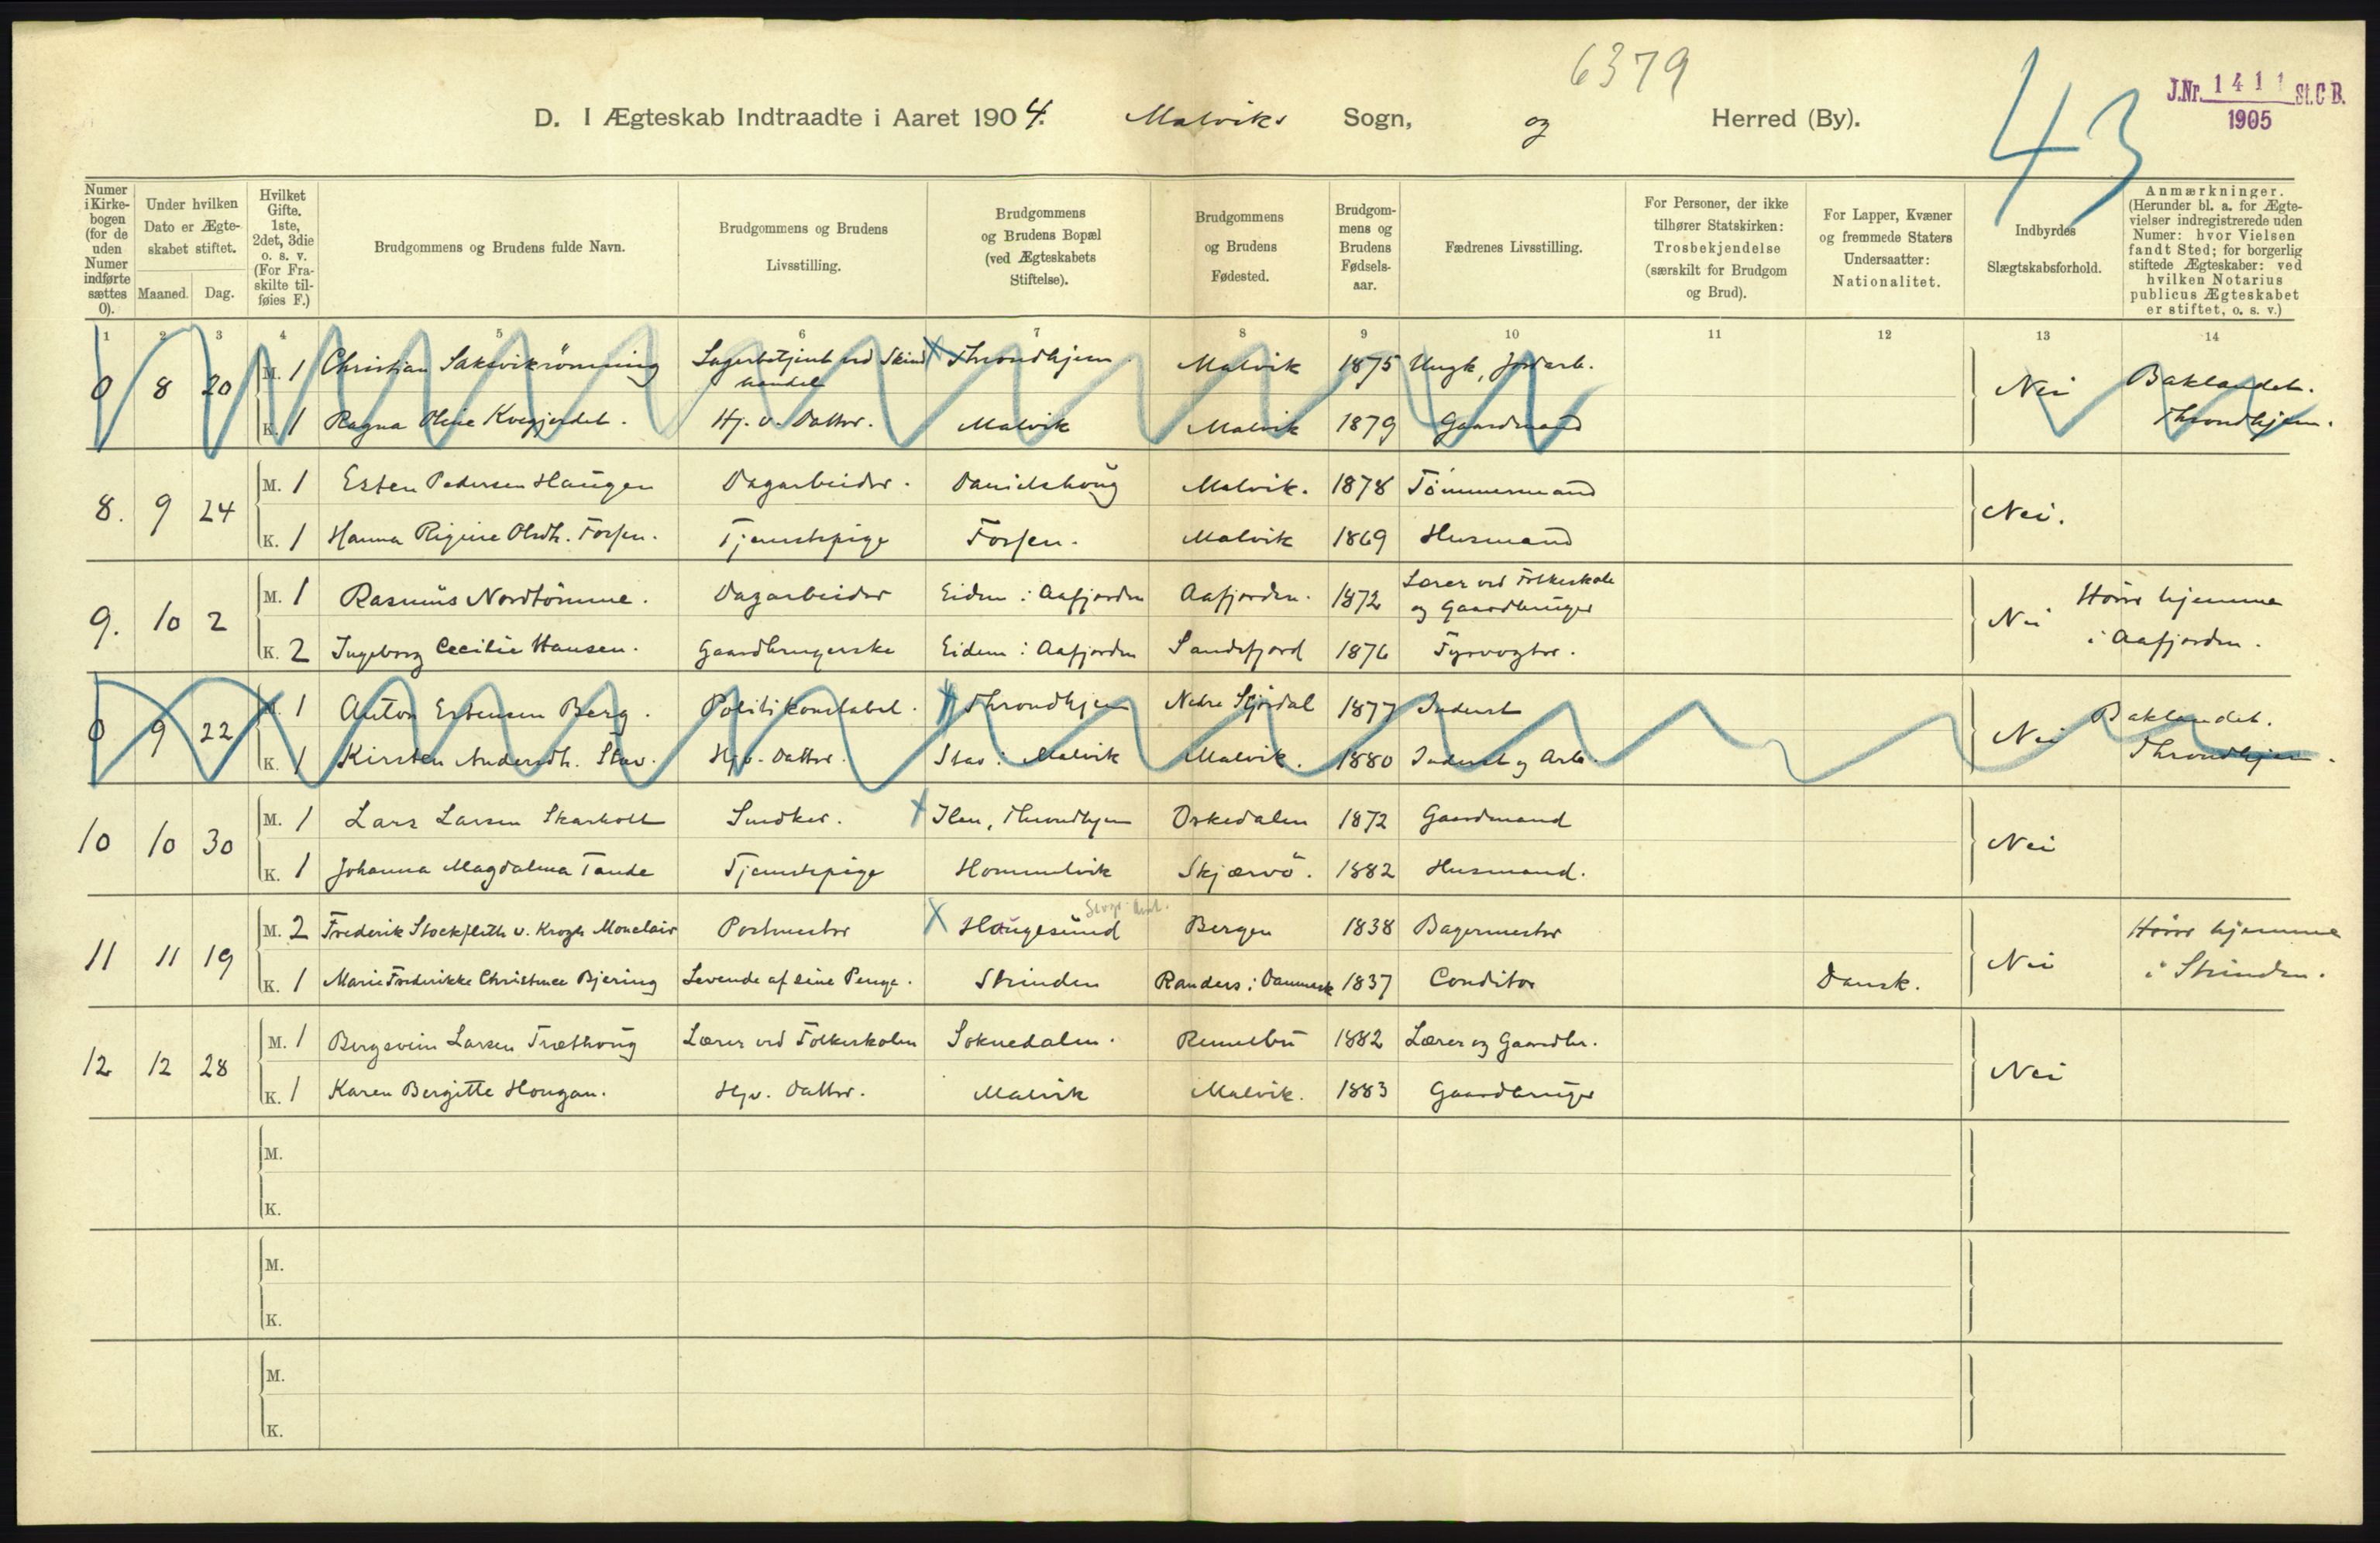 6379
43
J.Nr. 1411 St.C.B.
1905
D. I Ægteskab Indtraadte i Aaret 1904. Malviks Sogn, og Herred (By).
Numer i Kirkebogen (for de uden Numer indførte sættes 0).
Under hvilken Dato er Ægteskabet stiftet.
Maaned. Dag.
Hvilket Gifte. 1ste, 2det, 3die o. s. v. (For Fraskilte tilføies F.)
Brudgommens og Brudens fulde Navn.
Brudgommens og Brudens Livsstilling.
Brudgommens og Brudens Bopæl (ved Ægteskabets Stiftelse).
Brudgommens og Brudens Fødested.
Brudgommens og Brudens Fødselsaar.
Fædrenes Livsstilling.
For Personer, der ikke tilhører Statskirken: Trosbekjendelse (særskilt for Brudgom og Brud).
For Lapper, Kvæner og fremmede Staters Undersaatter: Nationalitet.
Indbyrdes Slægtskabsforhold.
Anmærkninger. (Herunder bl. a. for Ægtevielser indregistrerede uden Numer: hvor Vielsen fandt Sted; for borgerlig stiftede Ægteskaber: ved hvilken Notarius publicus Ægteskabet er stiftet, o. s. v.)
1 2 3 4 5 6 7 8 9 10 11 12 13 14
0 8 20 M. 1 Christian Saksvikrönning Lagerbetjent ved Skindhandel X Throndhjem Malvik 1875 Ungk, Jordarb. Nei Baklandet. Throndhjem.
K. 1 Ragna Oline Kvegjerdet. Hj. v. Datter. Malvik Malvik 1879 Gaardmand
8. 9 24 M. 1 Esten Pedersen Haugen Dagarbeider. Danielshoug Malvik. 1878 Tömmermand Nei.
K. 1 Hanna Rigine Olsdt. Forsen. Tjenestepige Forsen. Malvik 1869 Husmand
9. 10 2 M. 1 Rasmus Nordtömme. Dagarbeider Eidem i Aafjorden Aafjorden. 1872 Lærer ved Folkeskole og Gaardbruger Nei Hører hjemme i Aafjorden.
K. 2 Ingeborg Cecilie Hansen. Gaardbrugerske Eidem i Aafjorden Sandefjord 1876 Fyrvogter.
0 9 22 M. 1 Anton Estensen Berg. Politikonstabel. X Throndhjem Nedre Stjørdal 1877 Inderst Nei Baklandet. Throndhjem.
K. 1 Kirsten Andersdt. Stav. Hjv. Datter. Stav i Malvik Malvik. 1880 Inderst og Arb.
10 10 30 M. 1 Lars Larsen Skarholt Snedker. X Ilen, Throndhjem Orkedalen 1872 Gaardmand Nei
K. 1 Johanna Magdalena Tande Tjenestepige Hommelvik Skjærvö. 1882 Husmand.
11 11 19 M. 2 Frederik Stockfleth v. Krogh Monclair Postmester X Haugesund Bergen 1838 Bagermester Nei Hører hjemme i Strinden.
K. 1 Marie Frederikke Christence Bjering Levende af sine Penge. Strinden Randers i Danmark 1837 Conditor Dansk.
12 12 28 M. 1 Bergsvein Larsen Træthoug Lærer ved Folkeskolen Soknedalen. Rennebu 1882 Lærer og Gaardbr. Nei
K. 1 Karen Bergitte Hougan. Hjv. Datter. Malvik Malvik. 1883 Gaardbruger
M.
K.
M.
K.
M.
K.